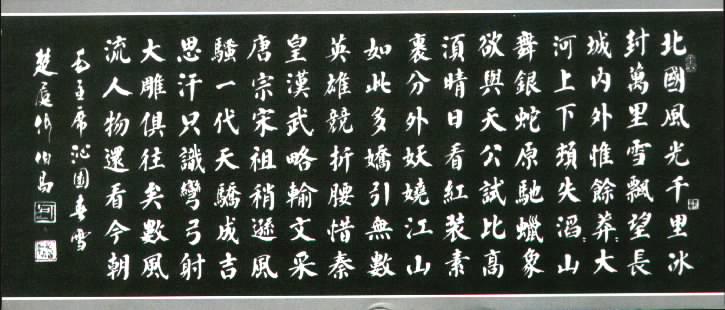 北國風光千里冰
封萬里雪飄望長
城内外惟餘莽〻大
河上下頓失滔〻山
舞銀蛇原馳蠟象
欲與天公試比高
須晴日看紅装素
裹分外妖嬈江山
如此多嬌引無數
英雄競折腰惜秦
皇漢武略輸文采
唐宗宋祖稍遜風
騷一代天驕成吉
思汗只識彎弓射
大雕俱往矣數風
流人物還看今朝
毛主席沁園春雪
楚